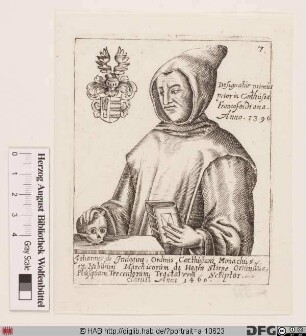 7.
Designatur primus
prior in Carthusia
Francofordiana.
Anno. 1396
Johannes de Indagine, Ordinis Carthusiani Monachus,
ex Nobilium Marchicorum de Hagen Stirpe Oriundus,
Plusquam Trecentorum Tractatuum Scriptor
Claruit Anno 1460
Herzog August Bibliothek Wolfenbüttel
Gray Scale
© HAB http://diglib.hab.de?portrait=a-10623